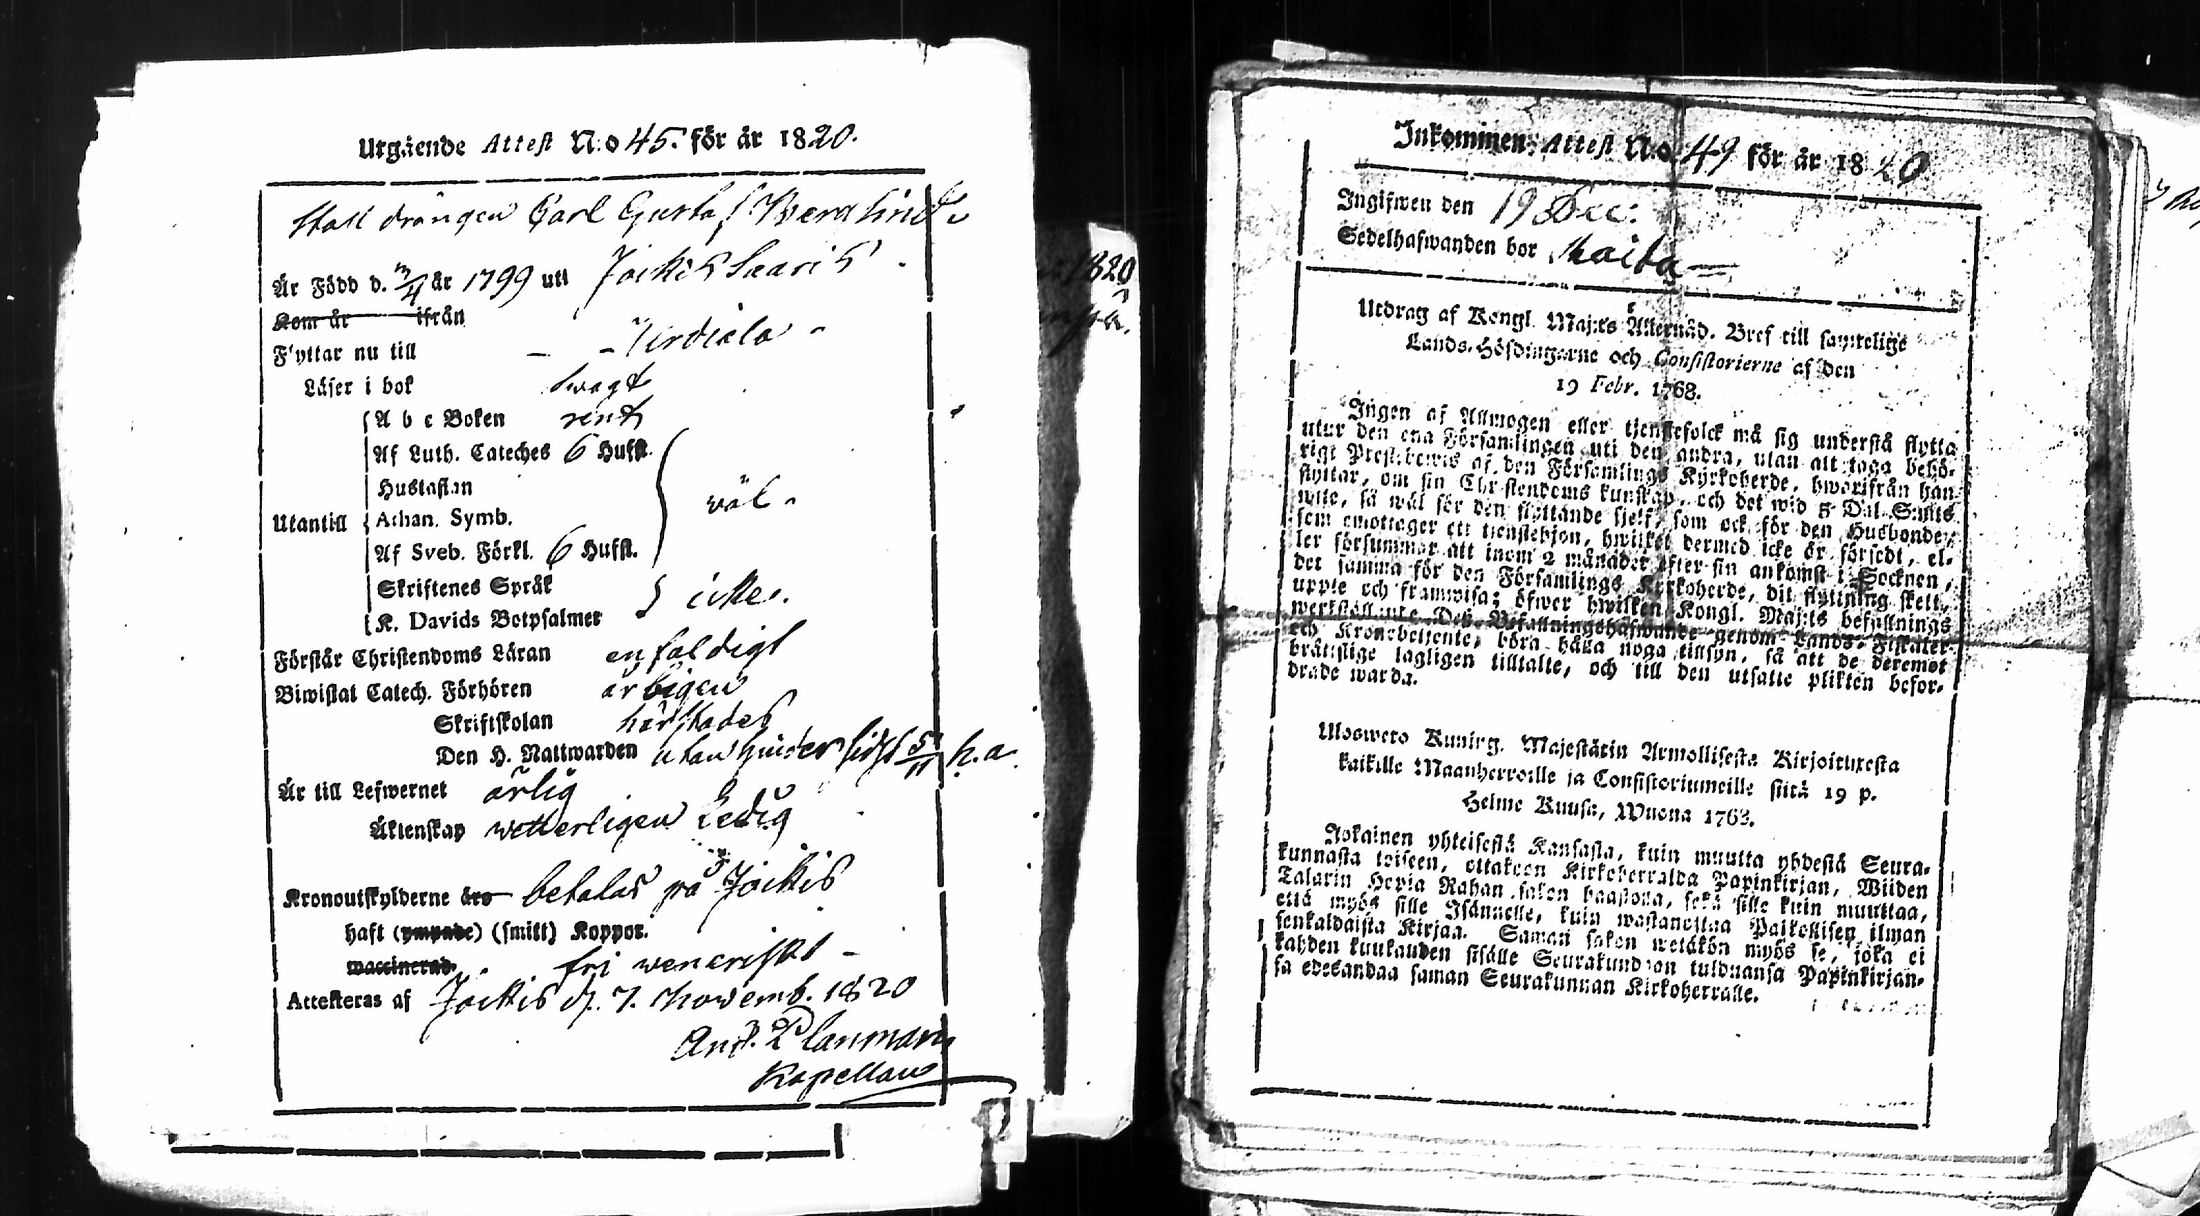 Utgående Attest N:o 45. för år 1820.
Stall drängen Carl Gustaf Berglind
Är Född d. 11/4 år 1799 uti Jockis Saaris
Kom år ifrån
Flyttar nu till - - Urdiala -
Läser i bok swagt
A b c Boken rent
Af Luth. Cateches 6 Hufst.
Hustaflan
wäl -
Utantill Athan. Symb.
Af Sveb. Förkl. 6 Hufst.
Skriftenes Språk
icke.
K. Davids Botpsalmer
Förstår Christendoms Läran enfaldigt
Biwistat Catech. Förhören årligen
Skriftskolan härstädes
Den H. Nattwarden utan hinder sidst 5/11 h. a.
Är till Lefwernet ärlig
Äktenskap wetterligen Ledig
Kronoutskylderne äro betalas på Jockis
haft (ympade) (smitt) Koppor.
waccinerad. fri weneriskt -
Attesteras af Jockis d. 7. Novemb. 1820
And. Planman
Kapellan
1820
Inkommen: Attest N:o 49 för år 1820
Ingifwen den 19 Dec:
Sedelhafwanden bor
Utdrag af Kongl. Maj:ts Allernåd. Bref till samtelige
Lands-Höfdingarne och Consistorierne af den
19 Febr. 1768.
Ingen af Allmogen eller tjenstefolck må sig understå flytta
utur den ena Församlingen uti den andra, utan att taga behö-
rigt Prestbewis af den Församlings Kyrkoherde, hwarifrån han
flyttar, om sin Christendoms kunskap, och det wid 5 Dal. S:mts
wite, så wäl för den flyttande sjelf, som ock för den Husbonde,
som emottager ett tjenstehjon, hwilket dermed icke är försedt, el-
ler försummar att inom 2 månader efter sin ankomst i Socknen,
det samma för den Församlings Kyrkoherde, dit flyttning skett,
uppte och framwisa; öfwer hwilken Kongl. Maj:ts befallnings
werkställande Deß Befallningshafwande genom Lands-Fiskaler
och Kronobetjente, böra hålla noga tillsyn, så att de deremot
bråttslige lagligen tilltalte, och till den utsatte plikten befor-
drade warda.
Ulosweto Kuning. Majestätin Armollisesta Kirjoituxesta
kaikille Maanherroille ja Consistoriumeille siitä 19 p.
Helme Kuusa, Wuona 1768.
Jokainen yhteisestä Kansasta, kuin muutta yhdestä Seura-
kunnasta toiseen, ottakoon Kirkoherralda Papinkirjan, Wiiden
Talarin Hopia Rahan sakon haastolla, sekä sille kuin muuttaa,
että myös sille Isännelle, kuin wastanottaa Palkollisen ilman
senkaldaista Kirjaa. Saman sakon wetäkön myös se, joka ei
kahden kuukauden sisälle Seurakundaan tulduansa Papinkirjan-
sa edesandaa saman Seurakunnan Kirkoherralle.